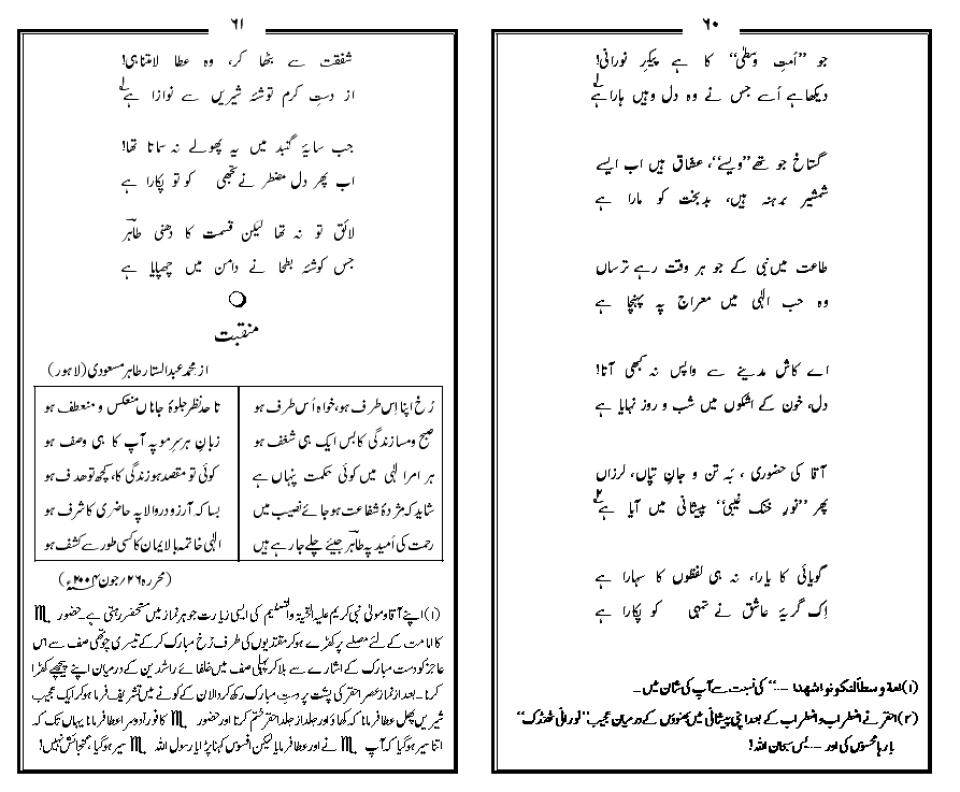 ۶۰
جو ”اُمتِ وسطیٰ“ کا ہے پیکرِ نورانی!
دیکھا ہے اُسے جس نے وہ دل وہیں ہارا ہے ۱؎
گستاخ جو تھے ”ویسے“، عشاق ہیں اب ایسے
شمشیر برہنہ ہیں، بدبخت کو مارا ہے
طاعت میں نبی کے جو ہر وقت رہے ترساں
وہ حب الٰہی میں معراج پہ پہنچا ہے
اے کاش مدینے سے واپس نہ کبھی آتا!
دل، خون کے اشکوں میں شب و روز نہایا ہے
آقا کی حضوری ، بَہ تن و جانِ تپاں، لرزاں
پھر ”نورِ خنک غیبی“ پیشانی میں آیا ہے ۲؎
گویائی کا یارا، نہ ہی لفظوں کا سہارا ہے
اِک گریۂ عاشق نے تمہی کو پکارا ہے
(۱) امۃ وسطاً لتکونوا شھدا ----“ کی نسبت سے آپ کی شان میں۔
(۲) احقر نے اضطراب و اضطراب کے بعد اپنی پیشانی میں بھنوؤں کے درمیان عجیب ”نورانی ٹھنڈک“
بارہا محسوس کی اور ---- پس سبحان اللہ!
۶۱
شفقت سے بٹھا کر، وہ عطا لامتناہی!
از دستِ کرم توشۂ شیریں سے نوازا ہے ۱؎
جب سایۂ گنبد میں یہ پھولے نہ سماتا تھا!
اب پھر دل مضطر نے تجھی کو تو پکارا ہے
لائق تو نہ تھا لیکن قسمت کا دھنی طاہر
جس کو شۂ بطحا نے دامن میں چھپایا ہے
منقبت
از محمد عبدالستار طاہر مسعودی (لاہور)
رُخ اپنا اِس طرف ہو، خواہ اُس طرف ہو تا حد نظر جلوۂ جاناں منعکس و منعطف ہو
صبح و مسا زندگی کا بس ایک ہی شغف ہو زبانِ ہر سرِمو پہ آپ کا ہی وصف ہو
ہر امر الٰہی میں کوئی حکمت پنہاں ہے کوئی تو مقصد ہو زندگی کا، کچھ تو ھدف ہو
شاید کہ مژدۂ شفاعت ہو جائے نصیب میں بسا کہ آرزو در والا پہ حاضری کا شرف ہو
رحمت کی اُمید پہ طاہر جیئے چلے جا رہے ہیں الٰہی خاتمہ بالایمان کا کسی طور سے کشف ہو
(محررہ ۲۶/جون ۲۰۰۴ء)
(۱) اپنے آقا و مولیٰ نبی کریم علیہ التحیۃ والتسلیم کی ایسی زیارت جو ہر نماز میں مستحضر رہتی ہے۔ حضور
کا امامت کے لئے مصلے پر کھڑے ہو کر مقتدیوں کی طرف رُخ مبارک کر کے تیسری چوتھی صف سے اس
عاجز کو دست مبارک کے اشارے سے بلا کر پہلی صف میں خلفائے راشدین کے درمیان اپنے پیچھے کھڑا
کرنا۔ بعد از نماز عصر احقر کی پشت پر دستِ مبارک رکھ کر دالان کے کونے میں تشریف فرما ہو کر ایک عجیب
شیریں پھل عطا فرمانا کہ کھاؤ اور جلد از جلد احقر ختم کرتا اور حضور کا فوراً دوسرا عطا فرمانا یہاں تک کہ
اتنا سیر ہو گیا کہ آپ نے اور عطا فرمایا لیکن افسوس کہنا پڑا یا رسول اللہ سیر ہو گیا، گنجائش نہیں!